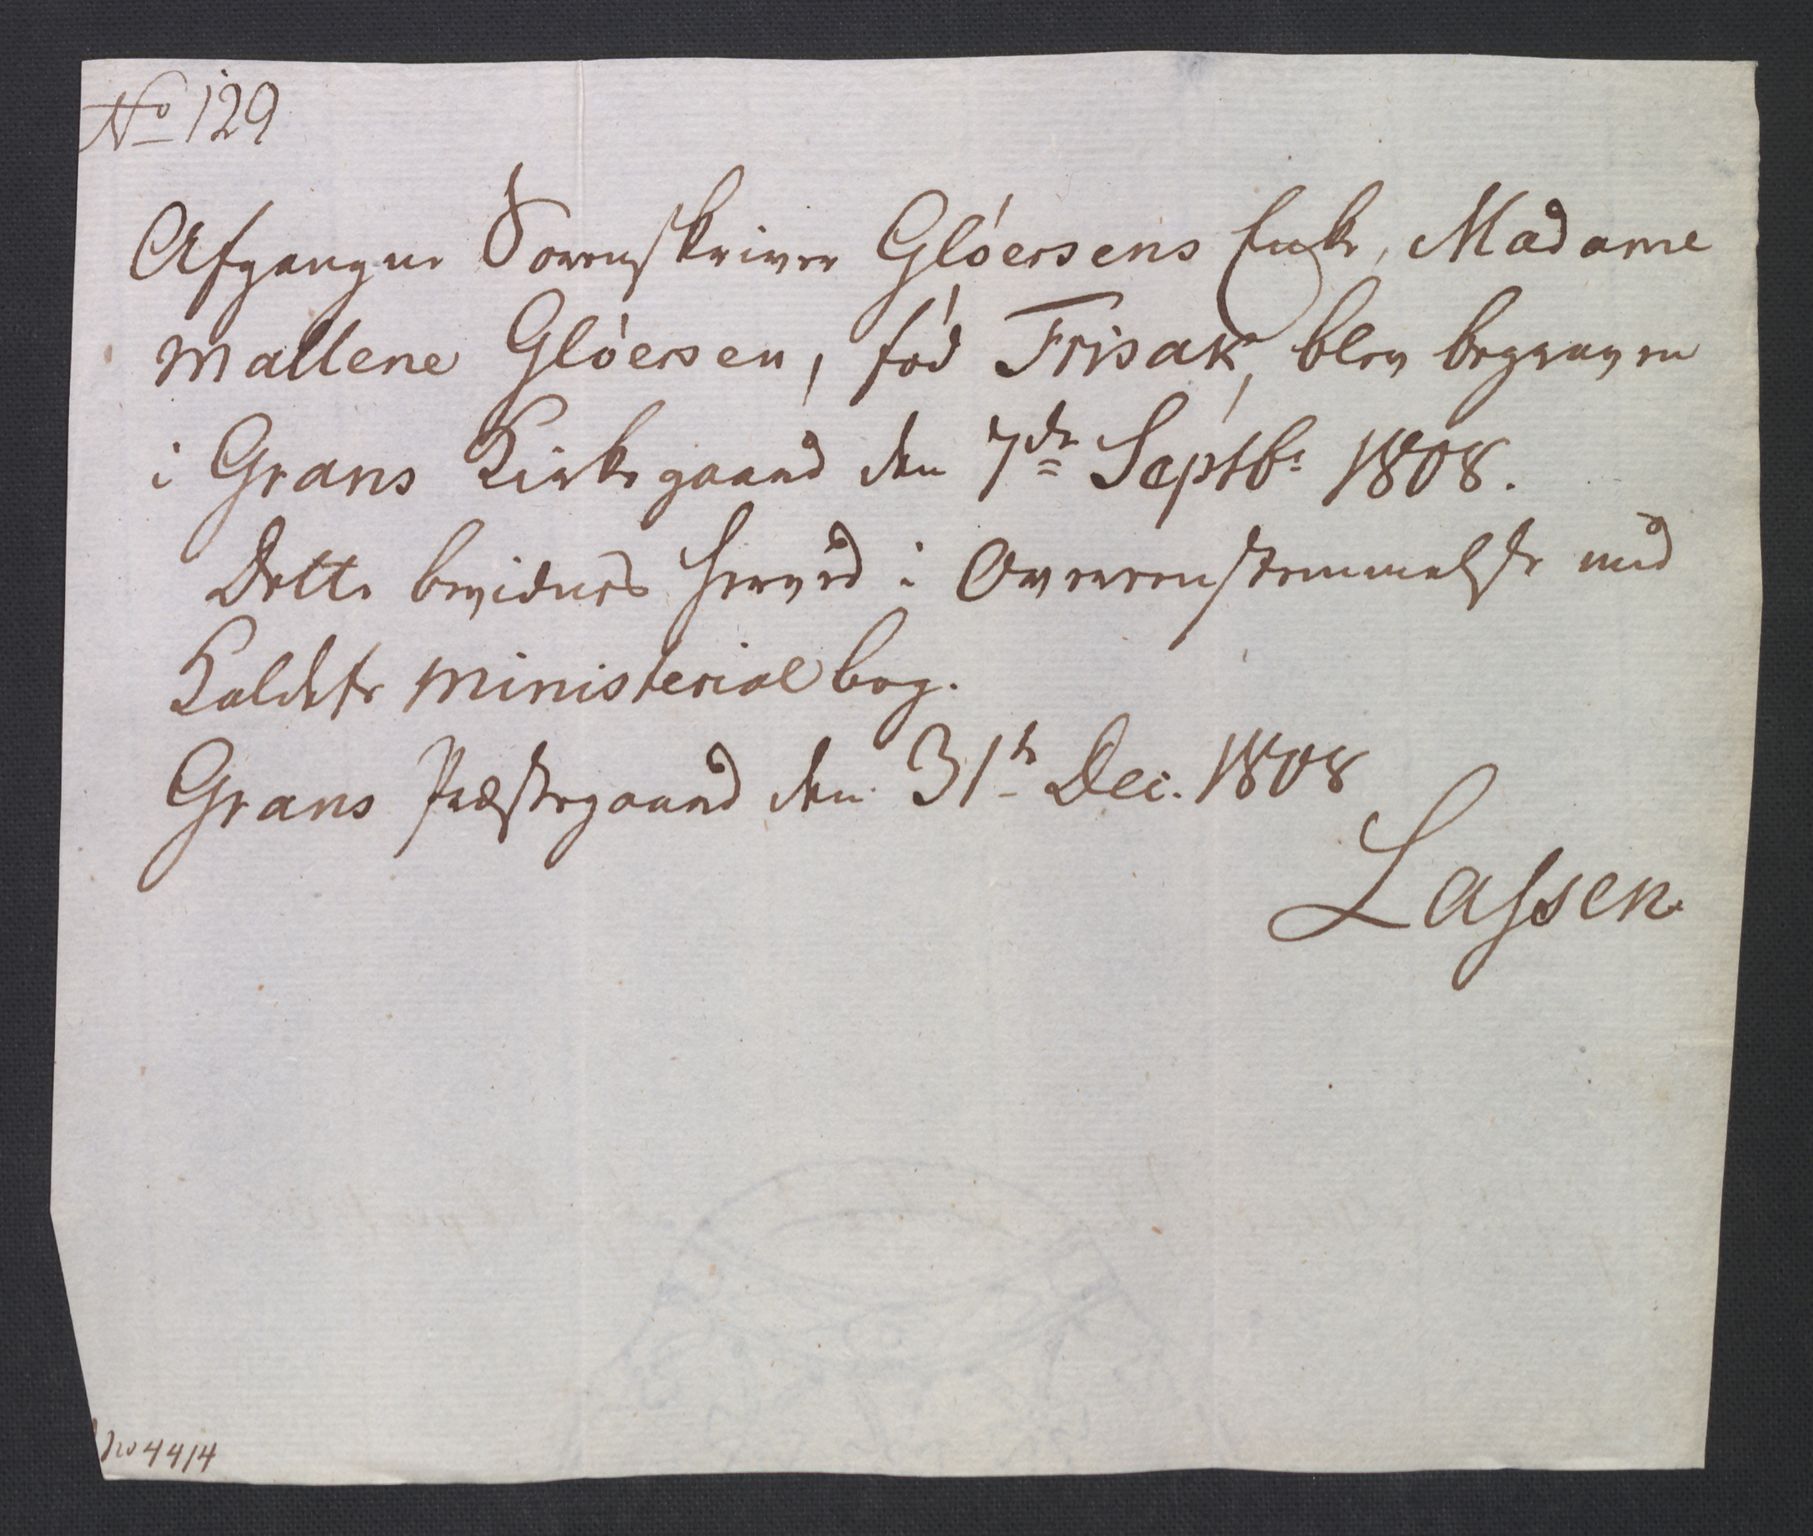 No 129
Afgangne Sorenskriver Glöersens Enke, Madame
Mallene Glöersen, fød Frisak, blev begraven
i Grans Kirkegaard den 7de Septbr 1808.
Dette bevidnes herved i Overeensstemmelse med
Kaldets Ministerialbog.
Grans Præstegaard den 31te Dec. 1808
Lassen.
No 4414